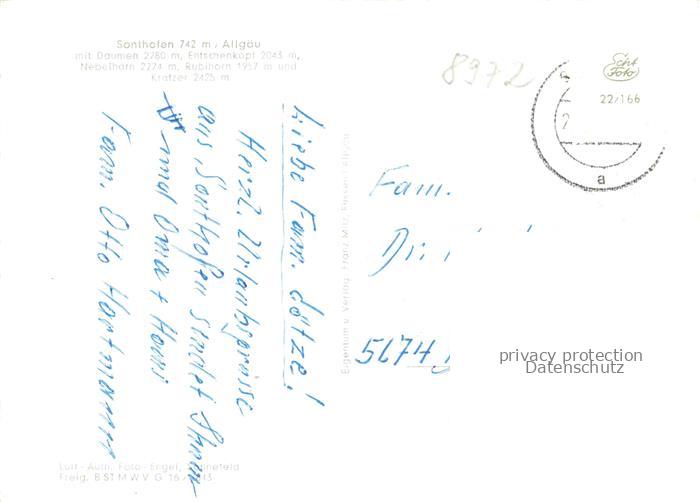 Sonthofen 742 m, Allgäu
mit Daumen 2280 m, Entschenkopf 2043 m,
Nebelhorn 2224 m, Rubihorn 1957 m und
Kratzer 2425 m
8972
Echt
Foto
22/166
a
Liebe Fam. Götze!
Herzl. Urlaubsgrüsse
aus Sonthofen sendet Ihnen
und Oma + Hansi
Fam. Otto Hartmann
Eigentum u. Verlag: Franz Milz, Füssen i. Allgäu
Fam.
5674
privacy protection
Datenschutz
Luft-Aufn. Foto-Engel,
Freig. B ST M W V G 16